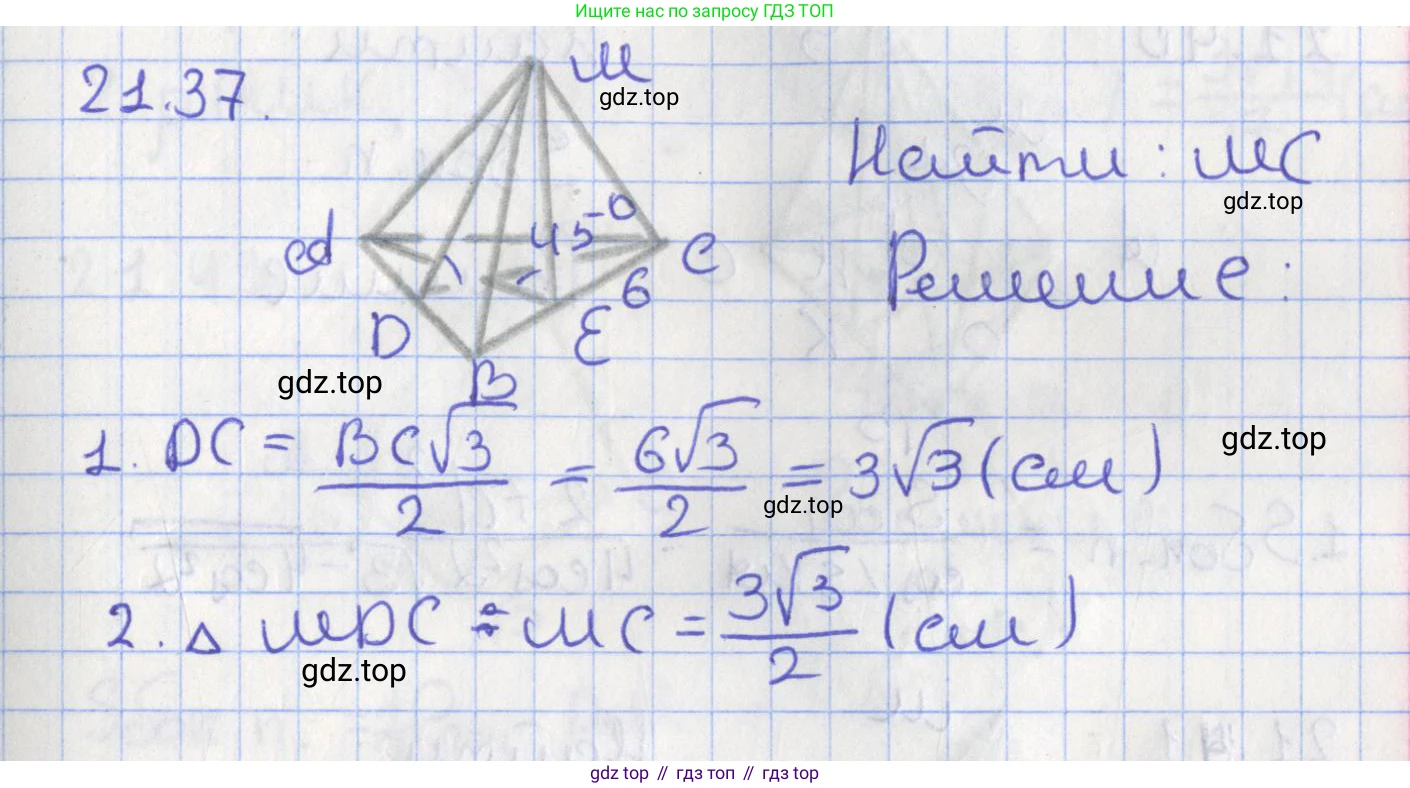 Ищите нас по запросу ГДЗ ТОП
21.37.
M
gdz.top
Найти: MC
gdz.top
A
45°
C
6
Решение:
D
E
B
gdz.top
1. DC = BC√3/2 = 6√3/2 = 3√3 (см)
gdz.top
gdz.top
2. △ MDC : MC = 3√3/2 (см)
gdz.top
gdz top // гдз топ // гдз top